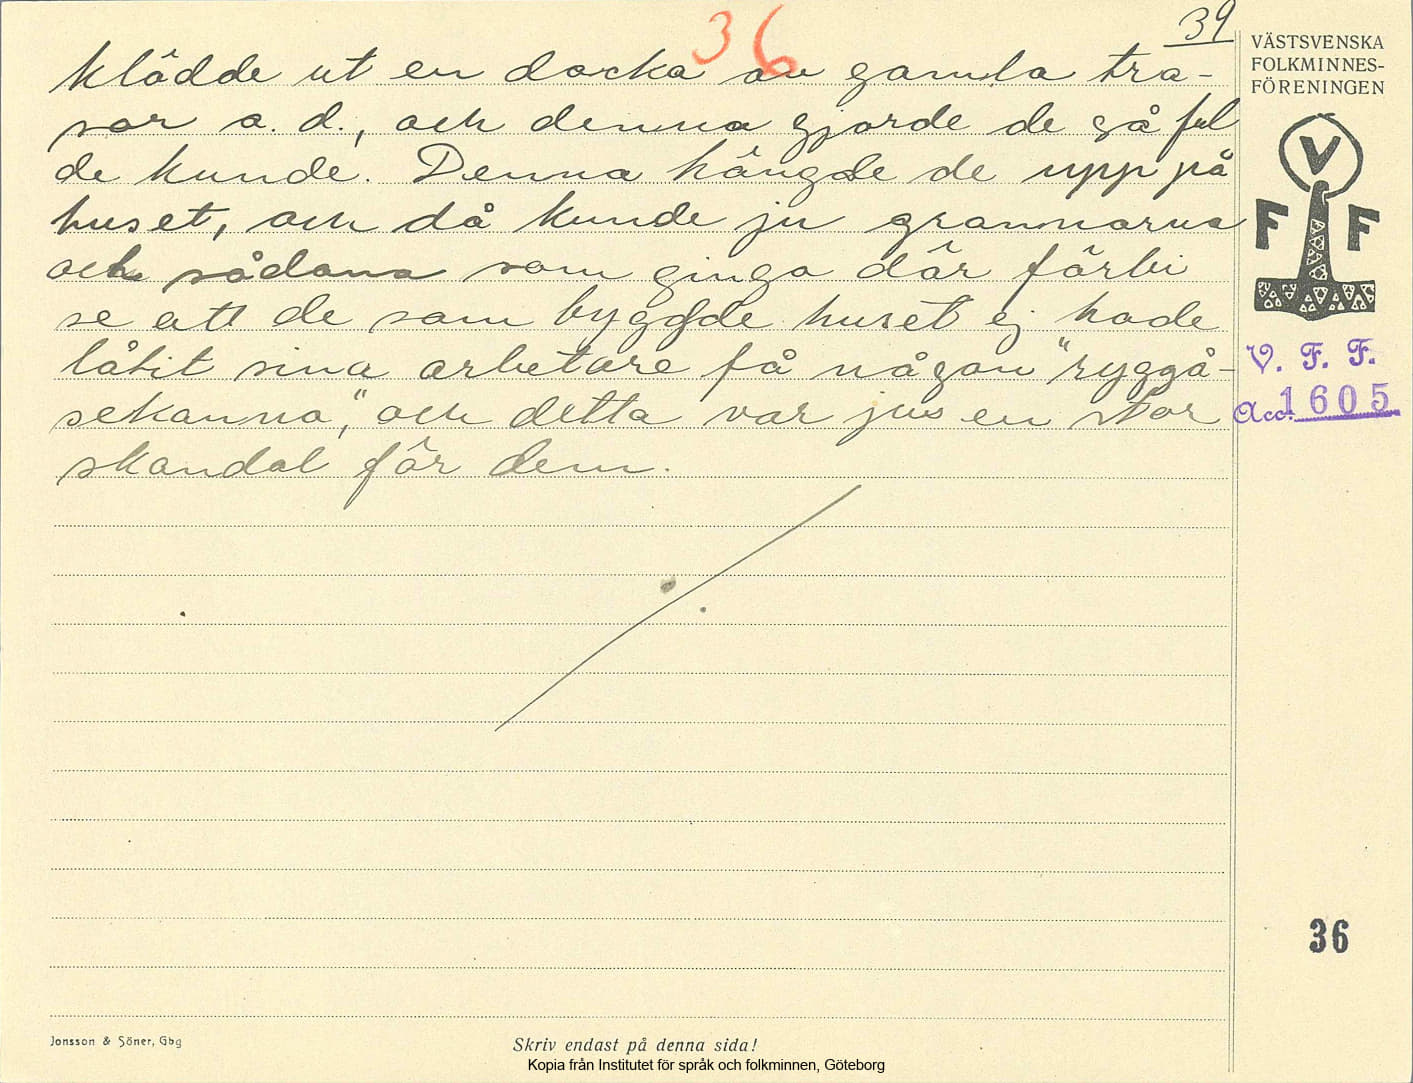 36
39
klädde ut en docka av gamla tra-
sor o. d., och denna gjorde de så ful
de kunde. Denna hängde de upp på
huset, och då kunde ju grannarna
och sådana som gingo där förbi
se att de som byggde huset ej hade
låtit sina arbetare få någon "ryggå-
sekanna," och detta var jus en stor
skandal för dem.
VÄSTSVENSKA
FOLKMINNES-
FÖRENINGEN
V
F F
V. F. F.
Acc. 1605
36
Jonsson & Söner, Gbg
Skriv endast på denna sida!
Kopia från Institutet för språk och folkminnen, Göteborg